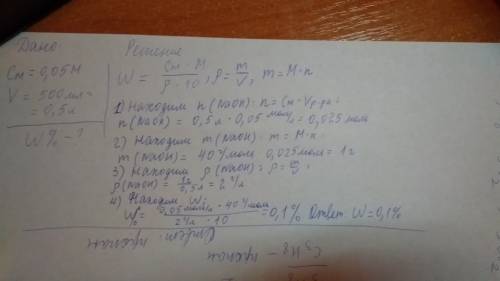 Дано:
Решение
Cм = 0,05 М
V = 500 мл =
= 0,5 л
W% - ?
W = Cм · M / ρ · 10 ; ρ = m/V ; m = M · n
1) Находим n (NaOH): n = Cм · Vр-ра:
n (NaOH) = 0,5 л · 0,05 моль/л = 0,025 моль
2) Находим m (NaOH): m = M · n:
m (NaOH) = 40 г/моль · 0,025 моль = 1 г
3) Находим ρ (NaOH) = ρ = m/V:
ρ (NaOH) = 1г/0,5л = 2 г/л
4) Находим W:
W% = 0,05 моль/л · 40 г/моль / 2 г/л · 10 = 0,1% Ответ W = 0,1%
C3H8 - пропан